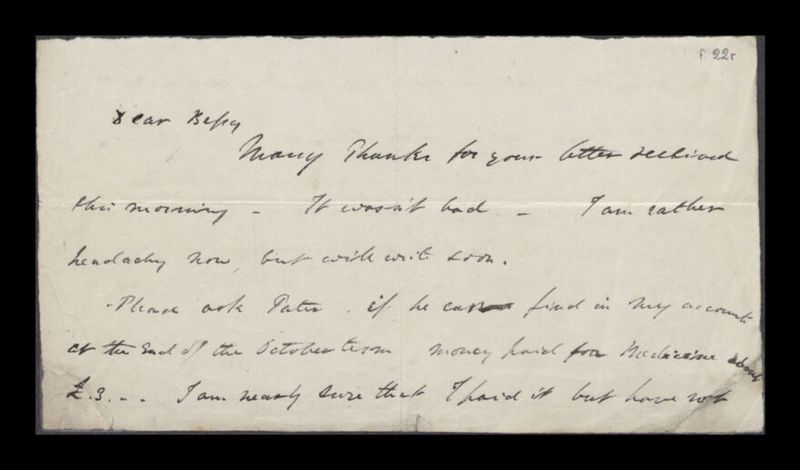 f. 22r
Dear Bessy
Many Thanks for your letter received
this morning - It wasn't bad. - I am rather
headachy now, but will write soon.
-Please ask Pater. if he can find in my accounts
at the End of the October term money paid for Medicine about
£.3.-. I am nearly sure that I paid it but have not